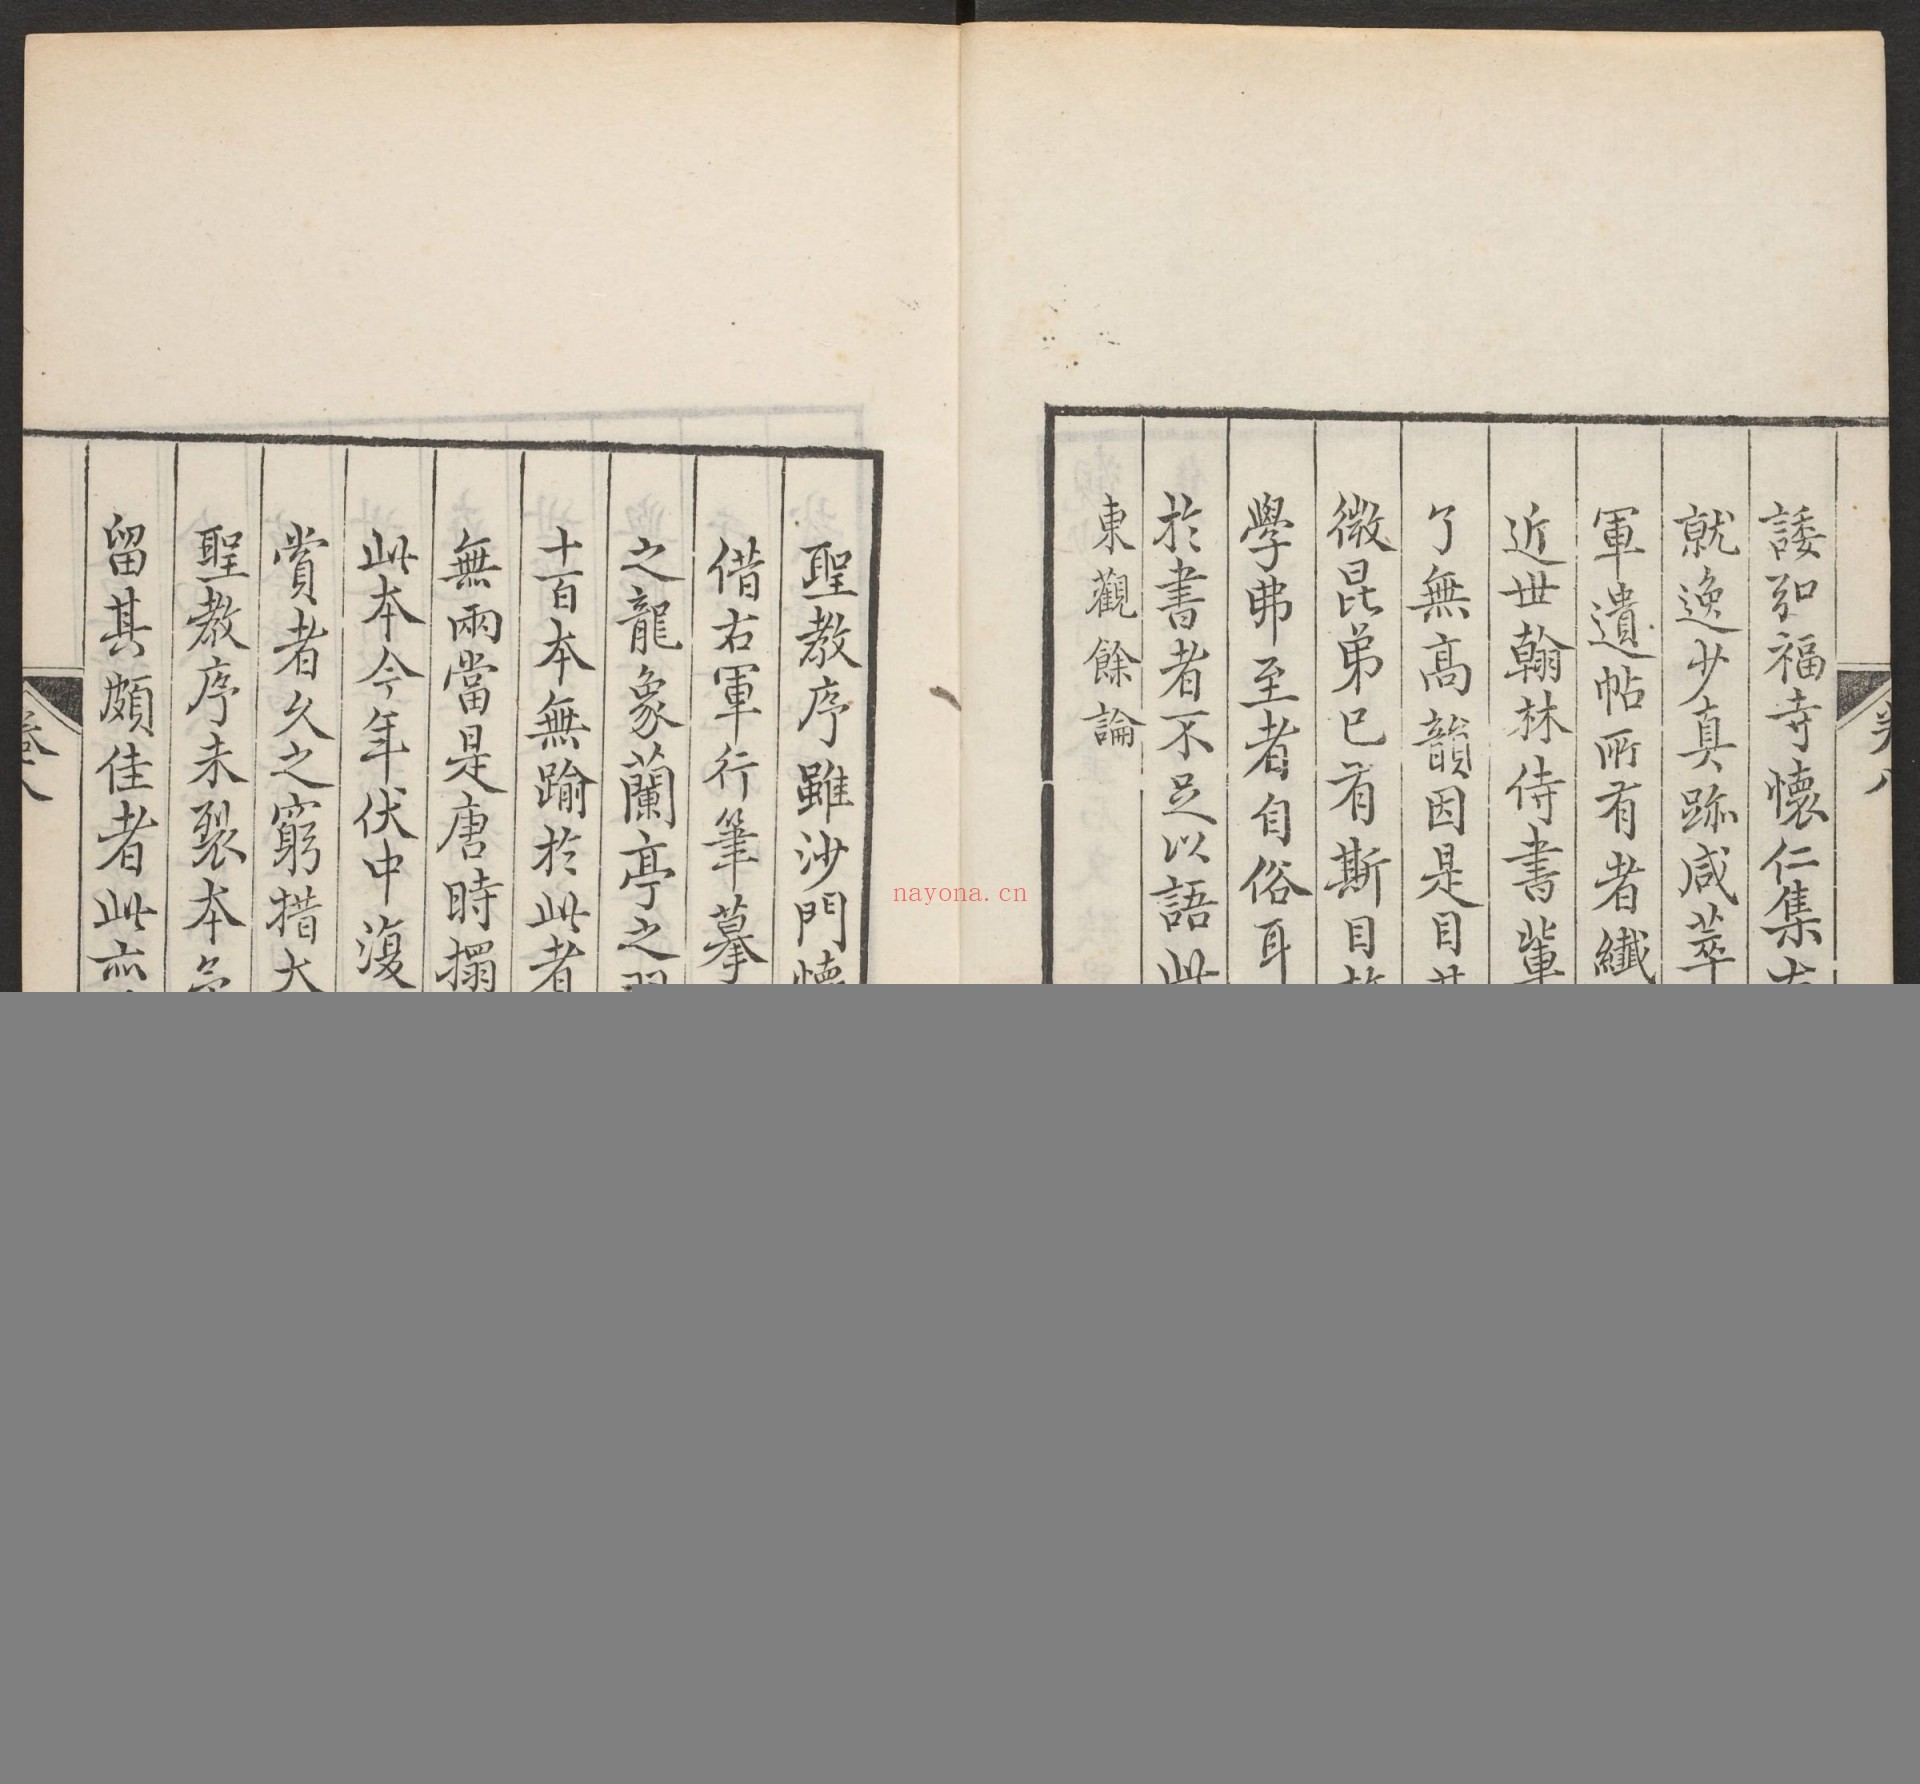 諉弘福寺懷仁集
就逸少真跡咸萃
軍遺帖所有者纖
近世翰林侍書輩
了無高韻因是目其
微昆弟已有斯目故
學弗至者自俗耳
於書者不足以語此
東觀餘論
聖教序雖沙門懷
借右軍行筆摹
之龍象蘭亭之羽
十百本無踰於此者
無兩當是唐時搨
此本今年伏中復
賞者久之窮措大
聖教序未裂本
留其頗佳者此亦
卷八
nayona.cn